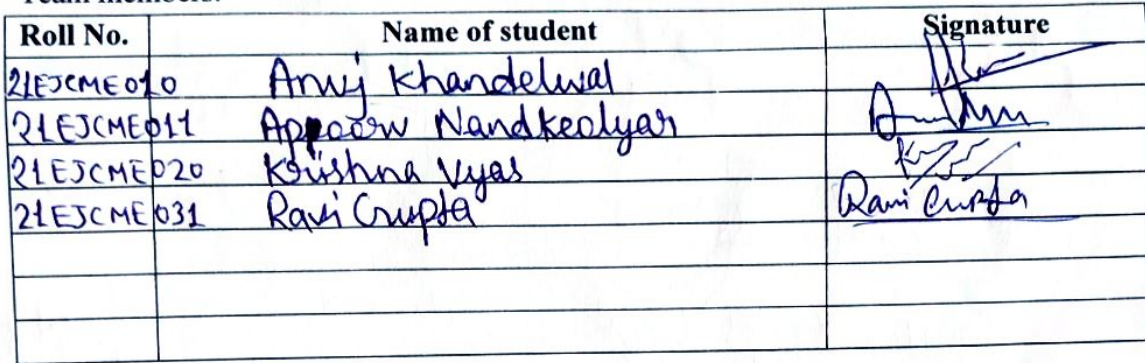 Roll No. Name of student Signature
21EJCME010 Anuj Khandelwal
21EJCME011 Apoorv Nandkeolyar
21EJCME020 Krishna Vyas
21EJCME031 Ravi Gupta Ravi Gupta